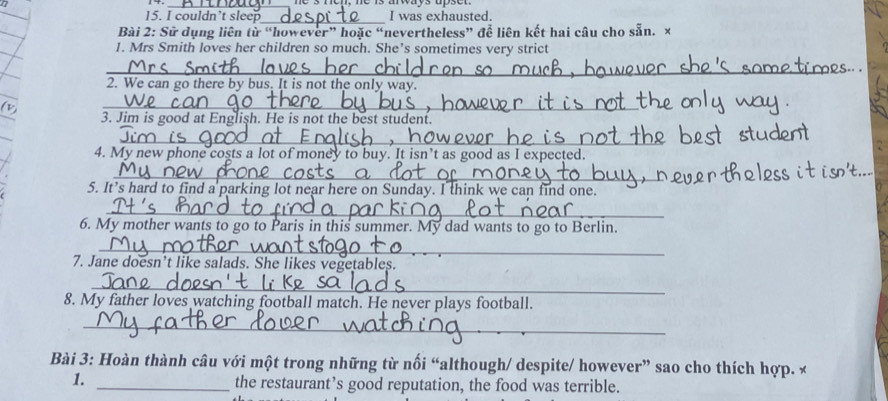 14. Although he's rich, he is always upset.
15. I couldn't sleep despite I was exhausted.
Bài 2: Sử dụng liên từ “however” hoặc “nevertheless” để liên kết hai câu cho sẵn. ×
1. Mrs Smith loves her children so much. She's sometimes very strict
Mrs Smith loves her children so much, however she's sometimes...
2. We can go there by bus. It is not the only way.
(V)
We can go there by bus, however it is not the only way.
3. Jim is good at English. He is not the best student.
Jim is good at English, however he is not the best student
4. My new phone costs a lot of money to buy. It isn't as good as I expected.
My new phone costs a lot of money to buy, nevertheless it isn't...
5. It's hard to find a parking lot near here on Sunday. I think we can find one.
It's hard to find a parking lot near
6. My mother wants to go to Paris in this summer. My dad wants to go to Berlin.
My mother wants to go to ....
7. Jane doesn't like salads. She likes vegetables.
Jane doesn't like salads ....
8. My father loves watching football match. He never plays football.
My father lover watching ....
Bài 3: Hoàn thành câu với một trong những từ nối “although/ despite/ however” sao cho thích hợp. ×
1. the restaurant's good reputation, the food was terrible.